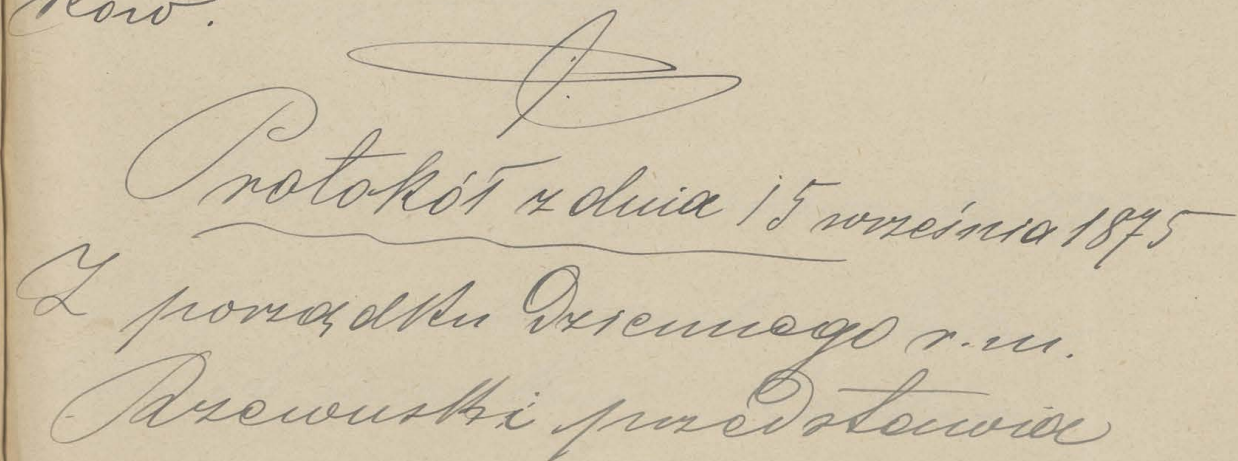 ków.
Protokół z dnia 15 września 1875
Z porządku Dziennego r. m.
Rzewuski przedstawia